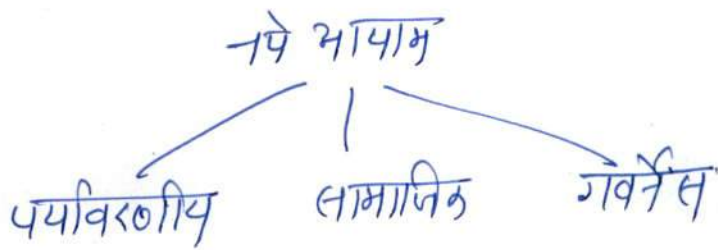 नये आयाम
पर्यावरणीय सामाजिक गवर्नेंस